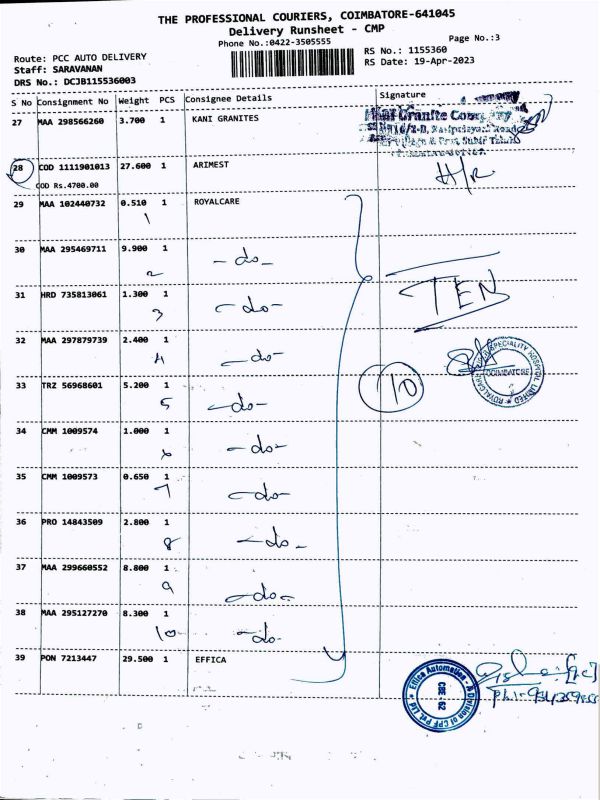 THE PROFESSIONAL COURIERS, COIMBATORE-641045
Delivery Runsheet - CMP
Phone No.:0422-3505555
Page No.:3
Route: PCC AUTO DELIVERY
RS No.: 1155360
Staff: SARAVANAN
RS Date: 19-Apr-2023
DRS No.: DCJB115536003
S No Consignment No Weight PCS Consignee Details Signature
27 MAA 298566260 3.700 1 KANI GRANITES
Granite
28 COD 1111901013 27.600 1 ARIMEST
H/R
COD Rs.4700.00
29 MAA 102440732 0.510 1 ROYALCARE
1
30 MAA 295469711 9.900 1 -do-
2
31 HRD 735813061 1.300 1 -do-
TEN
3
32 MAA 297879739 2.400 1 -do-
4
33 TRZ 56968601 5.200 1 -do-
10
5
ROYALCARE SUPER SPECIALITY HOSPITAL LIMITED
COIMBATORE
34 CMM 1009574 1.000 1 -do-
6
35 CMM 1009573 0.650 1 -do-
7
36 PRO 14843509 2.800 1 -do-
8
37 MAA 299660552 8.800 1 -do-
9
38 MAA 295127270 8.300 1 -do-
10
39 PON 7213447 29.500 1 EFFICA
Effica Automation - A Division of CPF Pvt. Ltd
CBE - 62